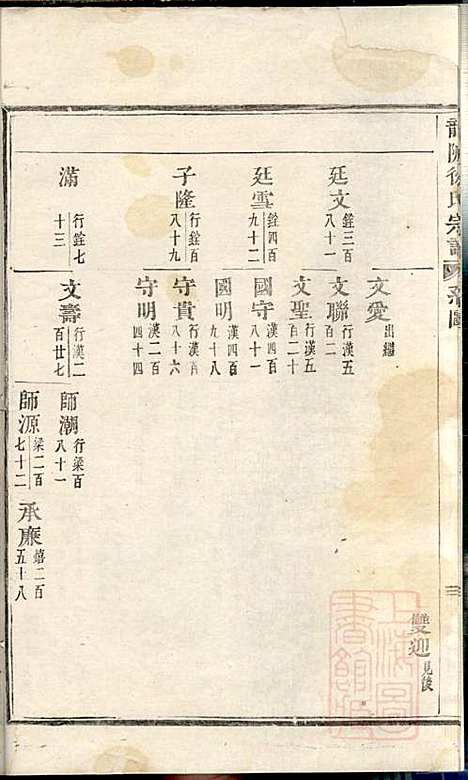 雙迎見後
文愛出繼
廷文銓三百八十一
文聯行漢五百二
文聖行漢五百二十
廷雪銓四百九十二
國守漢四百八十一
國明漢四百九十八
子隆行銓百八十九
守貴行漢百八十六
守明漢二百四十四
滿行銓七十三
文壽行漢二百廿七
師潮行梁百八十一
師源梁二百七十二
承廉嬉二百五十八
上海圖書館藏